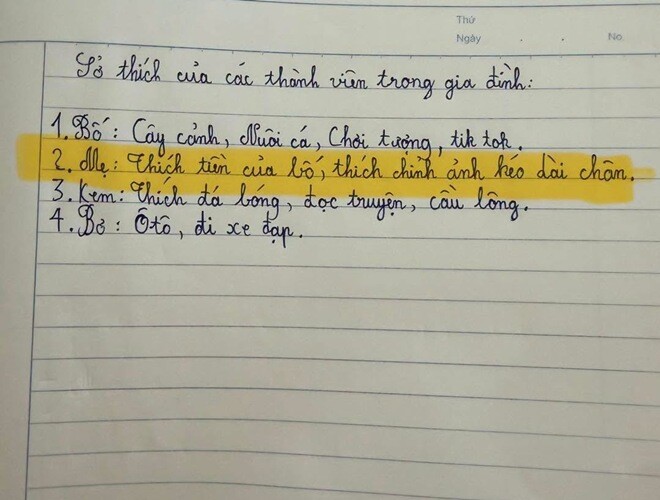 Thứ
Ngày . . No
Sở thích của các thành viên trong gia đình:
1. Bố: Cây cảnh, Nuôi cá, Chơi tượng, tik tok.
2. Mẹ: Thích tiền của bố, thích chỉnh ảnh kéo dài chân.
3. Kem: Thích đá bóng, đọc truyện, cầu lông.
4. Bơ: Ôtô, đi xe đạp.